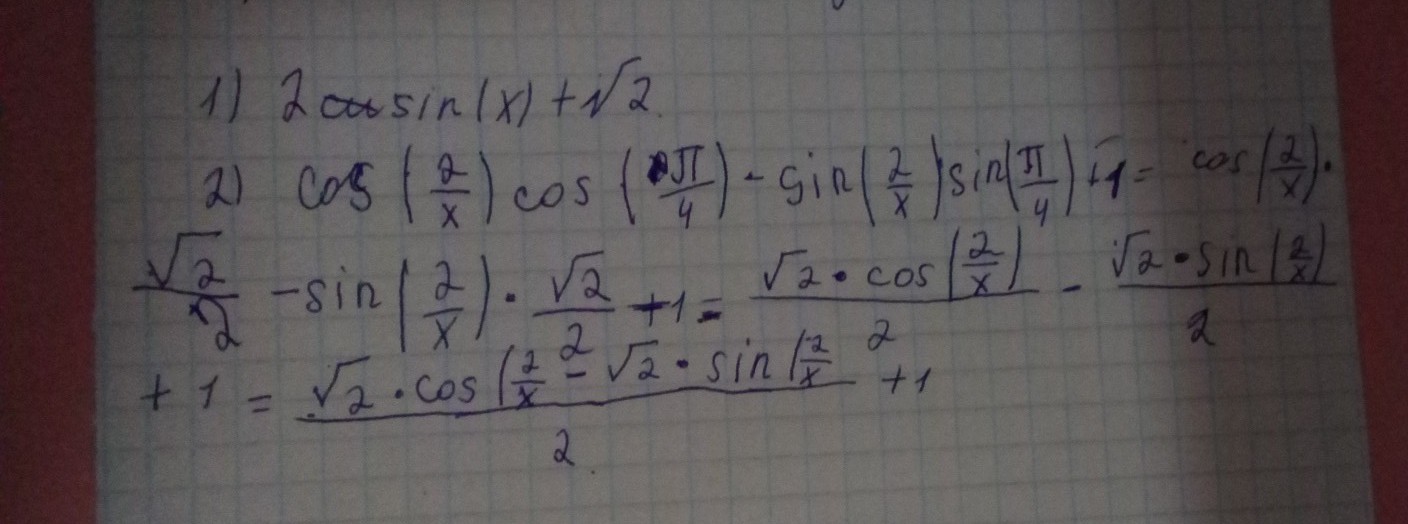 1) 2 sin(x) + √2
2) cos (2/x) cos (π/4) - sin (2/x) sin (π/4) + 1 = cos (2/x) ·
√2/2 - sin (2/x) · √2/2 + 1 = √2 · cos (2/x)/2 - √2 · sin (2/x)/2
+ 1 = √2 · cos (2/x - √2 · sin (2/x / 2 + 1